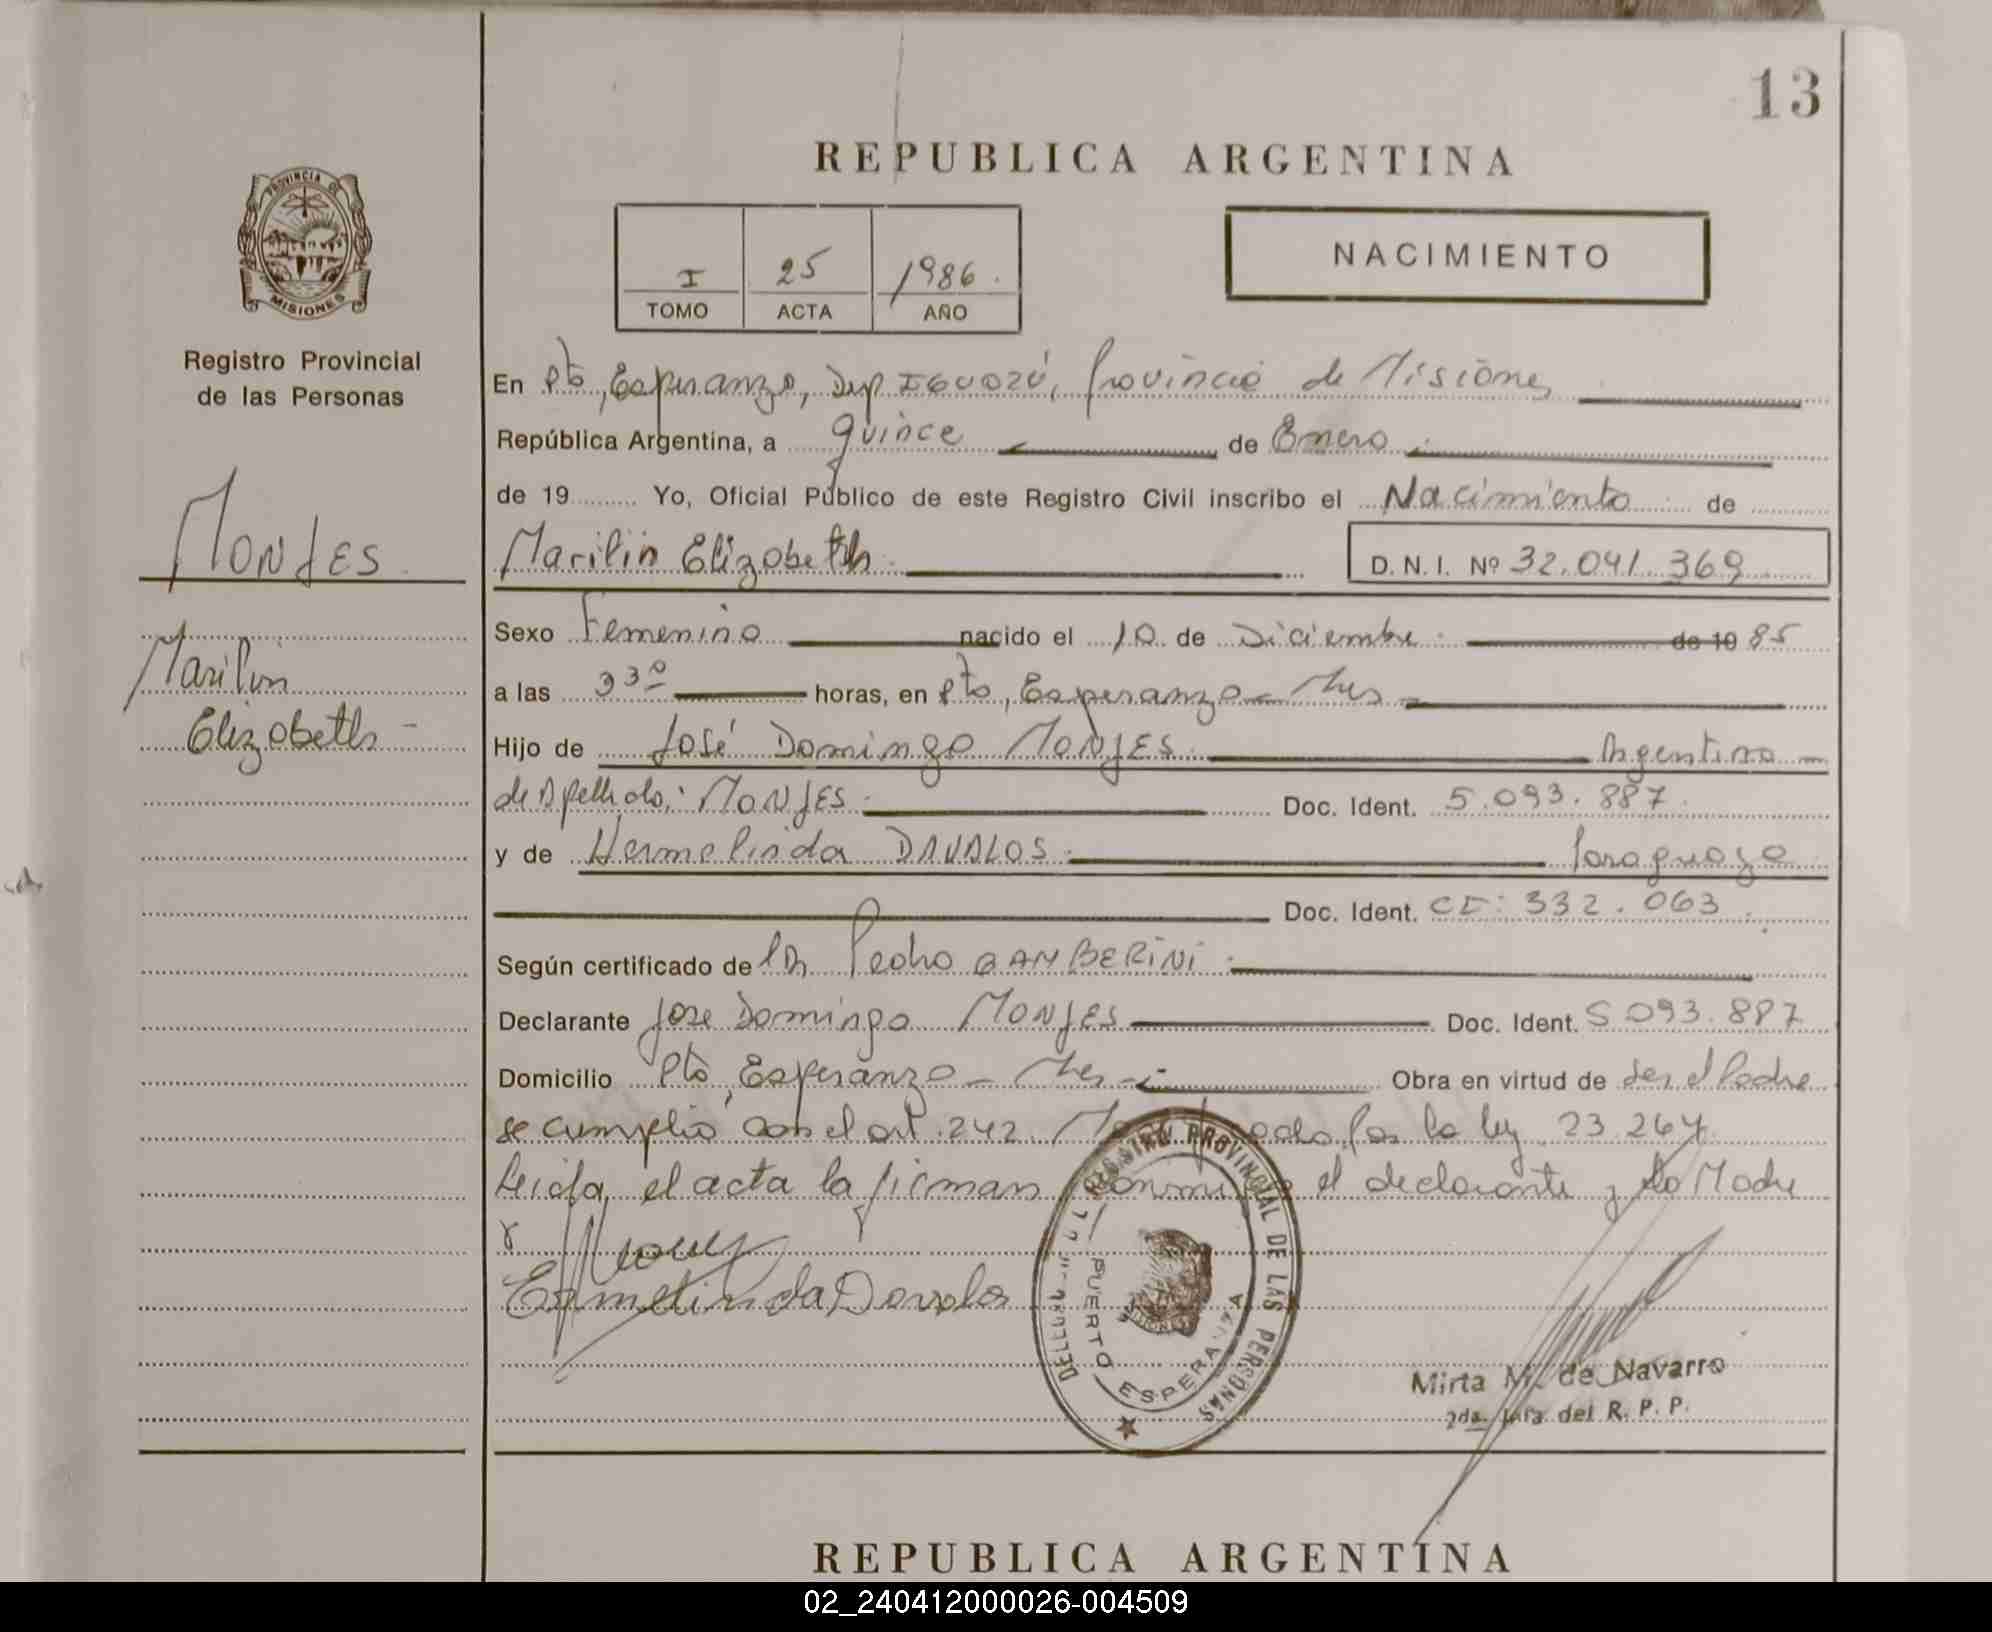 13
REPUBLICA ARGENTINA
PROVINCIA DE
MISIONES
Registro Provincial
de las Personas
I 25 1986.
TOMO ACTA AÑO
NACIMIENTO
En Pto, Esperanza, Dep IGUAZÚ, Provincia de Misiones
República Argentina, a quince de Enero
de 19 Yo, Oficial Público de este Registro Civil inscribo el Nacimiento de
Marilin Elizabeth. D. N. I. Nº 32.041.369
MONJES.
Marilin
Elizabeth -
Sexo Femenino nacido el 10 de Diciembre. de 19 85
a las 3 horas, en Pto, Esperanza - Mnes -
Hijo de José Domingo MONJES. Argentino
de Apellido: MONJES. Doc. Ident. 5.093.887.
y de Hermelinda DAVALOS. Paraguaya
Doc. Ident. CI: 332.063
Según certificado de Pedro GAMBERINI.
Declarante Jose Domingo MONJES Doc. Ident. 5.093.887
Domicilio Pto, Esperanza - Mnes - Obra en virtud de ser el Padre
se cumplio con el art. 242 por la ley 23.264.
Leida el acta la firman conmigo el declarante y la Madre
Ermelinda Davalos
REGISTRO PROVINCIAL DE LAS PERSONAS
PUERTO ESPERANZA
Mirta M. de Navarro
2da. Jefa del R. P. P.
REPUBLICA ARGENTINA
02_240412000026-004509